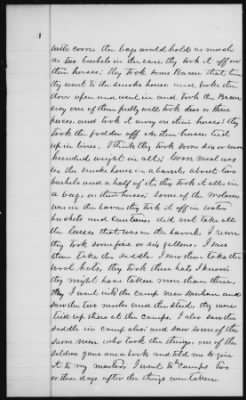 1
with corn the bags would hold as much
as two bushels in the ears. they took it off on
their horses; they took some Bacon that time
they went to the smoke house and broke the
door open and went in and took the Bacon
away one of them pretty well took two or three
pieces and took it away on their horses; they
took the fodder off on their horses tied
up in lines. I think they took some six or seven
hundred weight in all; Corn meal was
in the smoke house in a barrel about two
bushels and a half of it they took it all in
a bag on their horses; Some of the molasses
was in the barn they took it off in
buckets and canteens did not take all
the that was in the barrel. I
they took some five or six gallons. I saw
them take the saddle. I saw them take the
wool hats, they took three hats I know
they might have taken more than three.
I went into the camp near and
saw the two mules and the they were
tied up there at the camps. I also saw the
saddle in camp also and saw some of the
same men who took the things; one of the
soldiers gave me a book and told me to give
it to my master; I went to the camps two
or three days after the things were taken